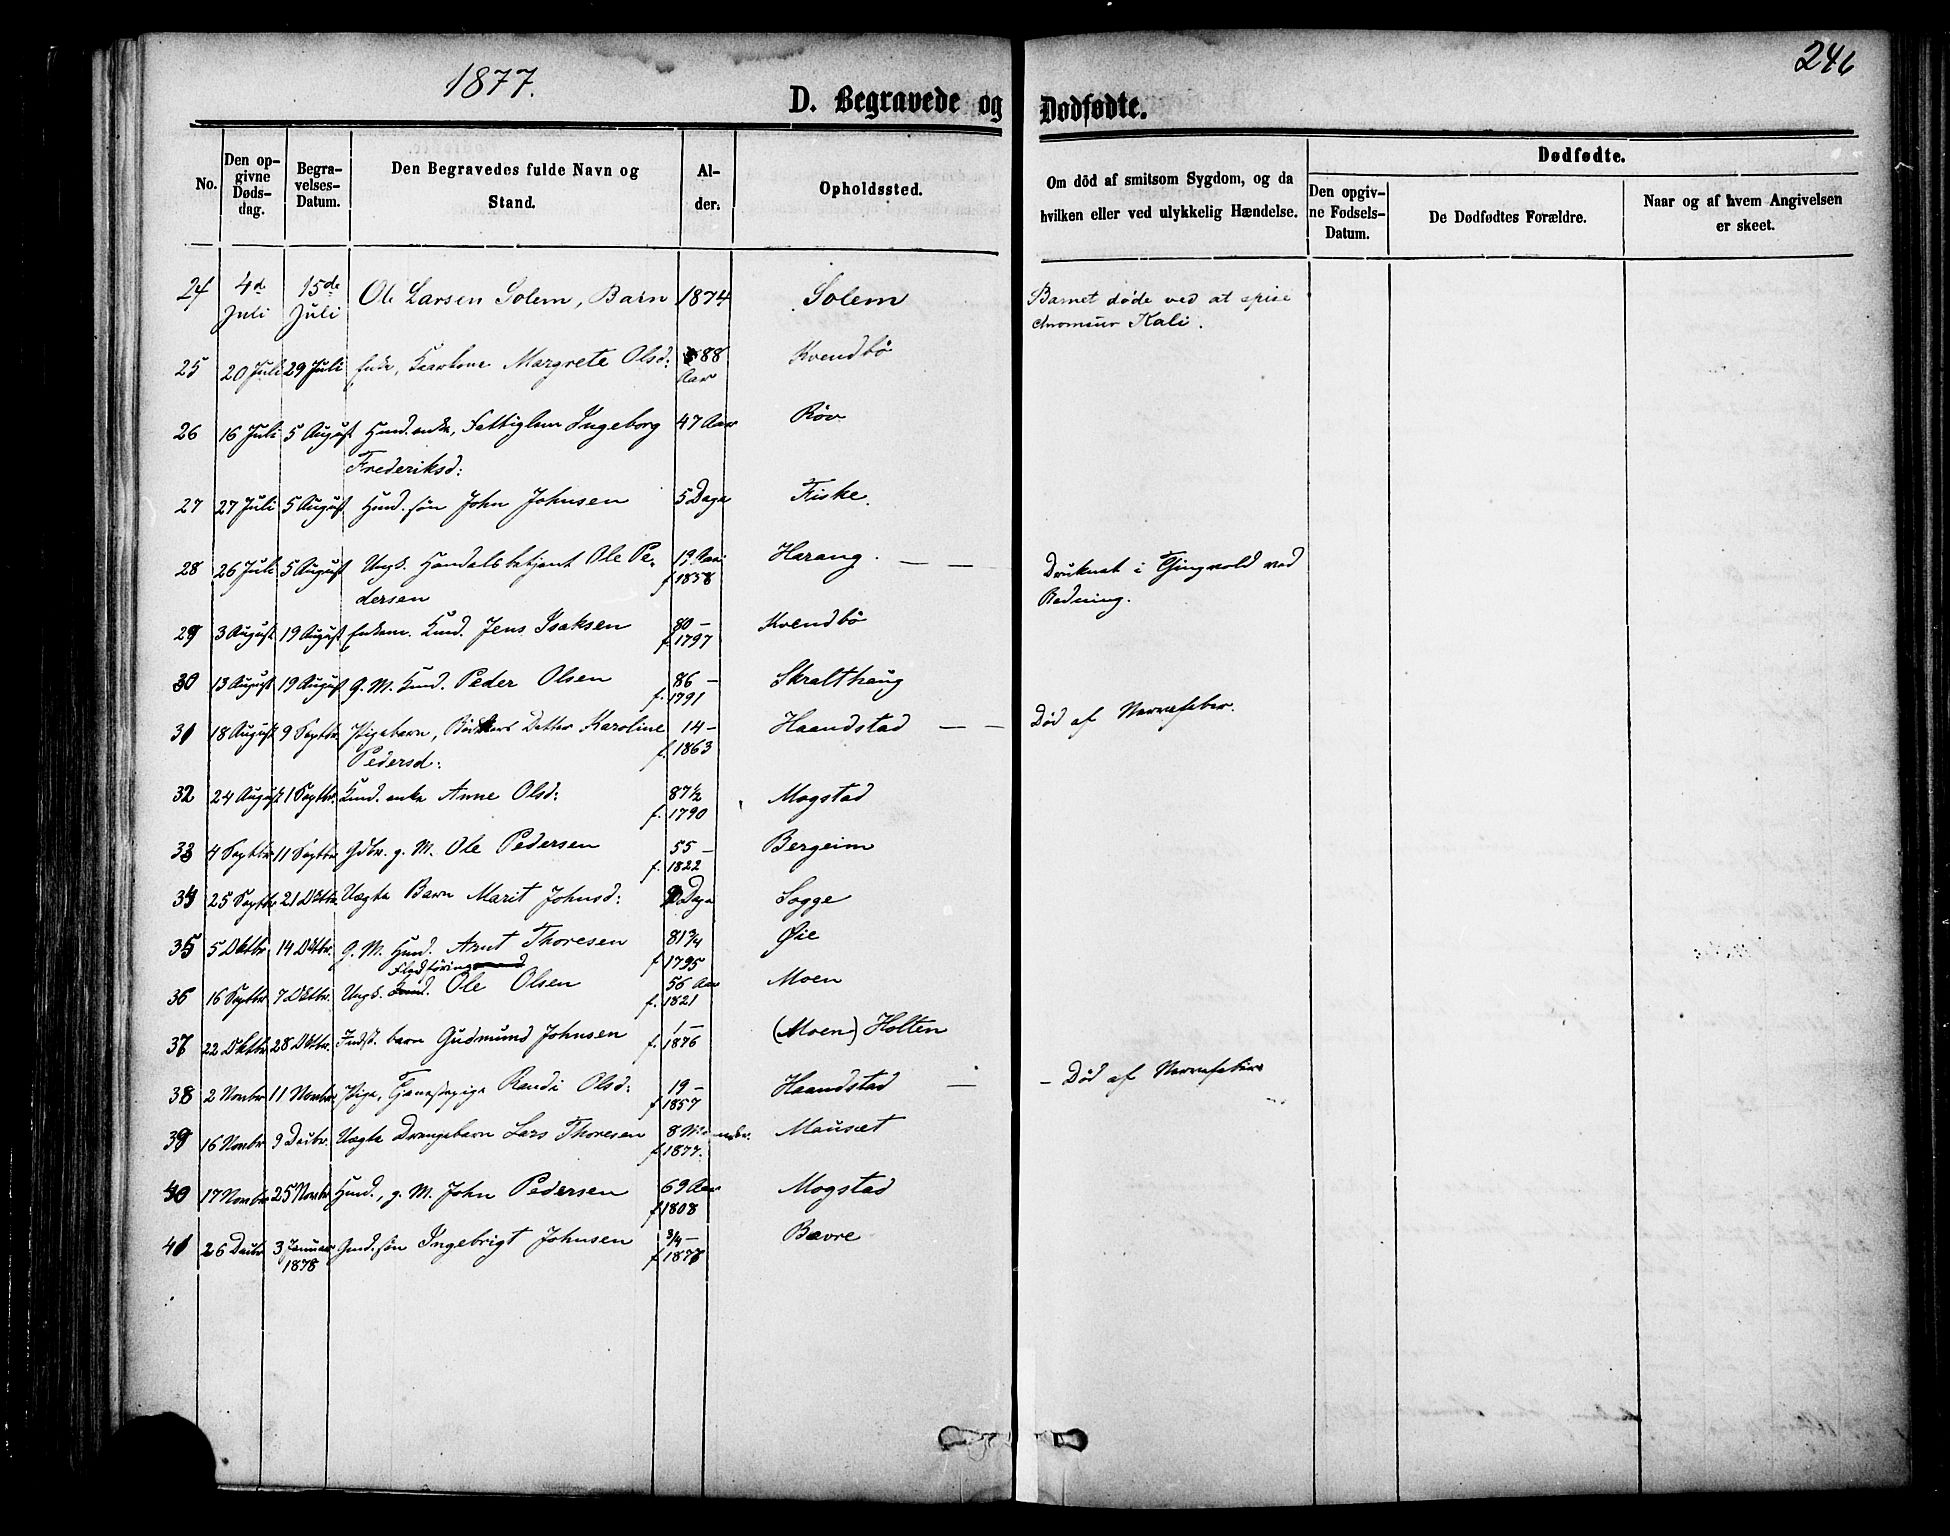 1877.
246
D. Begravede og Dødfødte.
No.
Den opgivne Døds-dag.
Begra-velses-Datum.
Den Begravedes fulde Navn og Stand.
Al-der.
Opholdssted.
Om död af smitsom Sygdom, og da hvilken eller ved ulykkelig Hændelse.
Dødfødte.
Den opgiv-ne Fødsels-Datum.
De Dødfødtes Forældre.
Naar og af hvem Angivelsen er skeet.
24 4de Juli 15de Juli Ole Larsen Solem, Barn 1874 Solem Barnet døde ved at spise
Kali.
25 20 Juli 29 Juli Enke, Margrete Olsd: 88 Aar Kvendbø
26 16 Juli 5 August Husmd. enke, Fattiglem Ingeborg 47 Aar Röv
Frederiksd:
27 27 Juli 5 August Husmd. søn John Johnsen 5 Dage Fiske.
28 26 Juli 5 August Ungk. Handelsbetjent Ole Pe- 19 Aar Harang. — — Druknet i Tingvold ved
dersen f 1858 Redning.
29 3 August 19 August Enkem. Jens Isaksen 80 — Kvendbö
f. 1797
30 13 August 19 August G. M. Peder Olsen 86 — Skralthaug
f. 1791
31 18 August 9 Septbr. Pigebarn, Datter Karoline 14 — Haandstad — — Død af Nervefeber.
Pedersd: f. 1863
32 24 August 1 Septbr. enke Anne Olsd: 87½ Mogstad
f. 1790
33 4 Septbr 11 Septbr. Gdbr. g. M. Ole Pedersen 55 — Bergeim
f. 1822
34 25 Septbr 21 Oktbr. Uægte Barn Marit Johnsd: Dage Sogge
35 5 Oktbr 14 Oktbr. G. M. Husmd. Arnt Thoresen 81¾ Øie
f 1795
36 16 Septbr 7 Oktbr. Ungk. Ole Olsen 56 Aar Moen
f. 1821
37 22 Oktbr 28 Oktbr. Indst. barn Gudmund Johnsen 1 — (Moen) Holten
f. 1876
38 2 Novbr 11 Novbr. Pige, Tjenestepige Randi Olsd: 19 — Haandstad — — Død af Nervefeber
f 1857
39 16 Novbr 9 Decbr. Uægte Drengebarn Lars Thoresen 8 Mauset
f 1877.
40 17 Novbr 25 Novbr Husmd., g. M. John Pedersen 69 Aar Mogstad
f 1808
41 26 Decbr 3 Januar Gmd. søn Ingebrigt Johnsen ¾ — Bævre
1878 f 1877